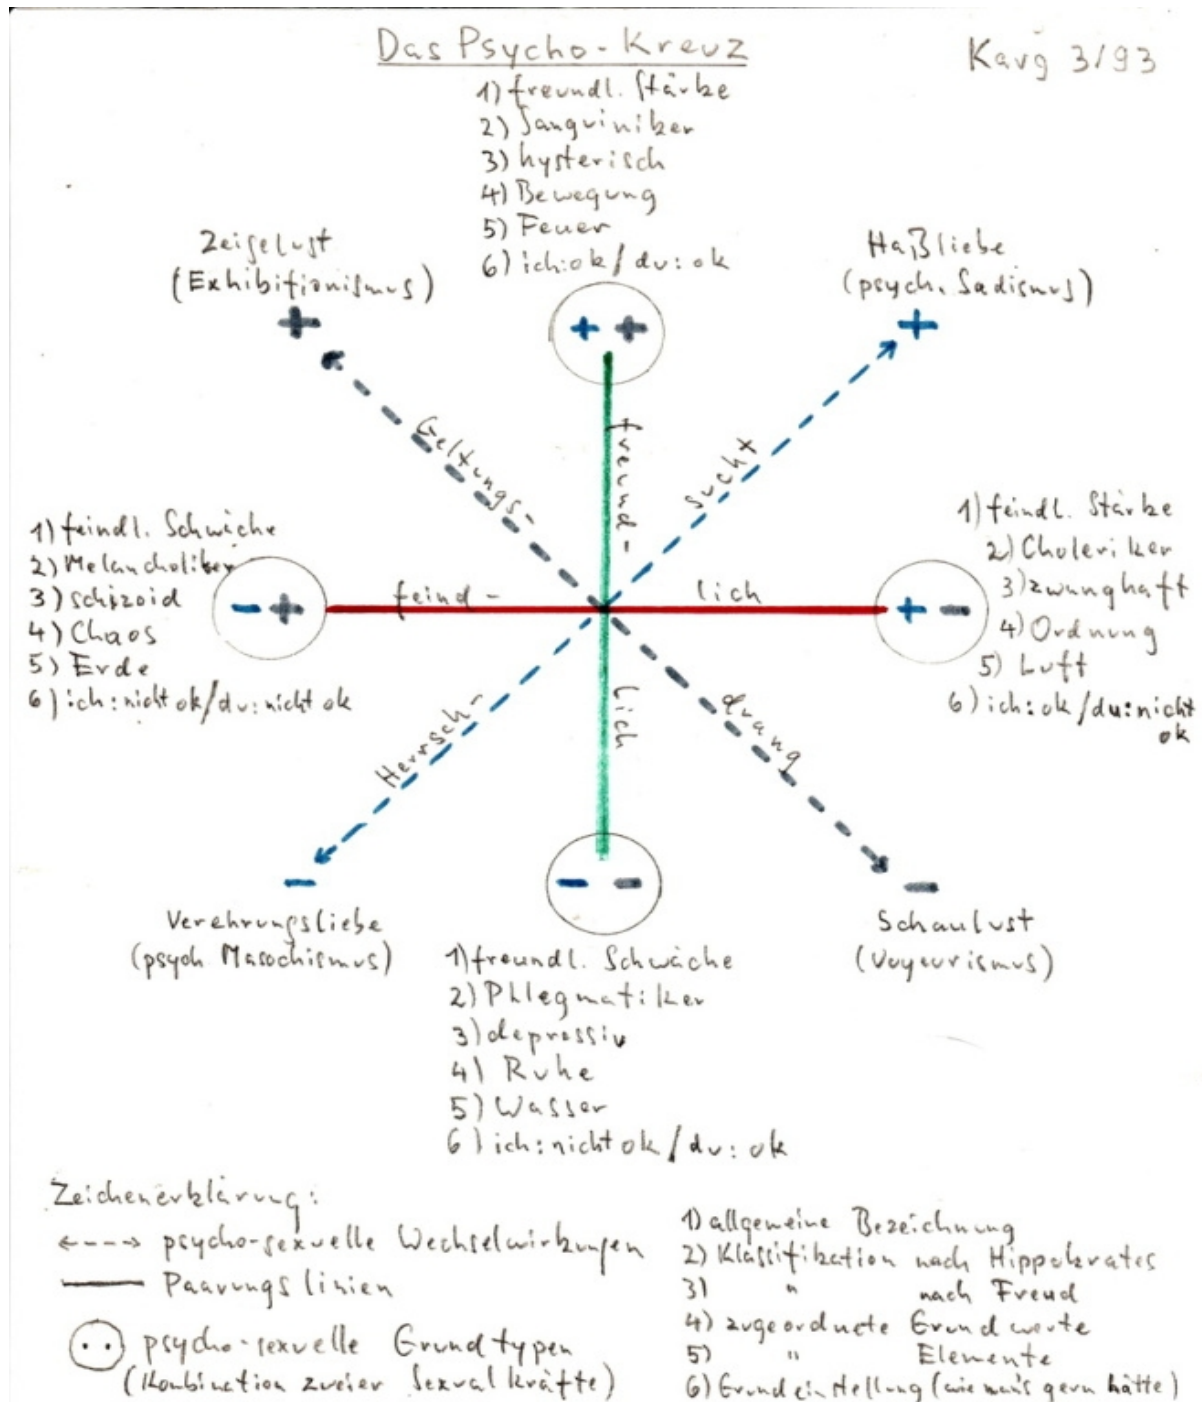 Das Psycho-Kreuz
Karg 3/93
1) freundl. Stärke
2) Sanguiniker
3) hysterisch
4) Bewegung
5) Feuer
6) ich:ok/du:ok
Zeigelust
(Exhibitionismus)
Haßliebe
(psych. Sadismus)
+
+ +
+
Geltungs-
freund-
sucht
1) feindl. Schwäche
2) Melancholiker
3) schizoid
4) Chaos
5) Erde
6) ich:nicht ok/du:nicht ok
- +
feind-
lich
+ -
1) feindl. Stärke
2) Choleriker
3) zwanghaft
4) Ordnung
5) Luft
6) ich:ok/du:nicht
ok
Herrsch-
lich
drang
-
- -
-
Verehrungsliebe
(psych. Masochismus)
Schaulust
(Voyeurismus)
1) freundl. Schwäche
2) Phlegmatiker
3) depressiv
4) Ruhe
5) Wasser
6) ich:nicht ok/du:ok
Zeichenerklärung:
<----> psycho-sexuelle Wechselwirkungen
Paarungslinien
psycho-sexuelle Grundtypen
(Kombination zweier Sexualkräfte)
1) allgemeine Bezeichnung
2) Klassifikation nach Hippokrates
3) " nach Freud
4) zugeordnete Grundwerte
5) " Elemente
6) Grundeinstellung (wie man's gern hätte)